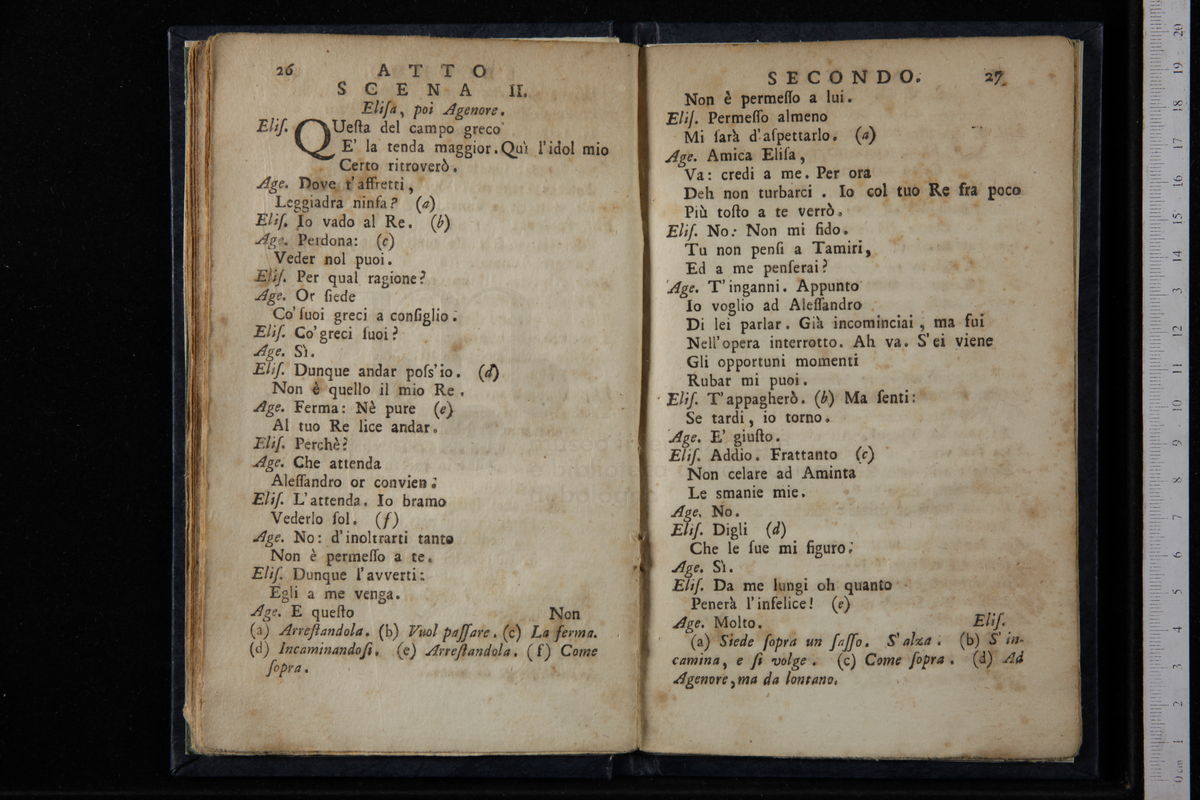 26 ATTO
SCENA II.
Eliſa, poi Agenore.
Eliſ. QUeſta del campo greco
E' la tenda maggior. Quì l'idol mio
Certo ritroverò.
Age. Dove t'affretti,
Leggiadra ninfa? (a)
Eliſ. Io vado al Re. (b)
Age. Perdona: (c)
Veder nol puoi.
Eliſ. Per qual ragione?
Age. Or ſiede
Co'ſuoi greci a conſiglio.
Eliſ. Co'greci ſuoi?
Age. Sì.
Eliſ. Dunque andar poſs'io. (d)
Non è quello il mio Re.
Age. Ferma: Nè pure (e)
Al tuo Re lice andar.
Eliſ. Perchè?
Age. Che attenda
Aleſſandro or convien.
Eliſ. L'attenda. Io bramo
Vederlo ſol. (f)
Age. No: d'inoltrarti tanto
Non è permeſſo a te.
Eliſ. Dunque l'avverti:
Egli a me venga.
Age. E queſto
Non
(a) Arreſtandola. (b) Vuol paſſare. (c) La ferma.
(d) Incaminandoſi. (e) Arreſtandola. (f) Come
ſopra.
SECONDO. 27
Non è permeſſo a lui.
Eliſ. Permeſſo almeno
Mi ſarà d'aſpettarlo. (a)
Age. Amica Eliſa,
Va: credi a me. Per ora
Deh non turbarci. Io col tuo Re fra poco
Più toſto a te verrò.
Eliſ. No: Non mi fido.
Tu non penſi a Tamiri,
Ed a me penſerai?
Age. T'inganni. Appunto
Io voglio ad Aleſſandro
Di lei parlar. Già incominciai, ma fui
Nell'opera interrotto. Ah va. S'ei viene
Gli opportuni momenti
Rubar mi puoi.
Eliſ. T'appagherò. (b) Ma ſenti:
Se tardi, io torno.
Age. E' giuſto.
Eliſ. Addio. Frattanto (c)
Non celare ad Aminta
Le smanie mie.
Age. No.
Eliſ. Digli (d)
Che le ſue mi figuro.
Age. Sì.
Eliſ. Da me lungi oh quanto
Penerà l'infelice! (e)
Age. Molto.
Eliſ.
(a) Siede ſopra un ſaſſo. S'alza. (b) S'in-
camina, e ſi volge. (c) Come ſopra. (d) Ad
Agenore, ma da lontano.